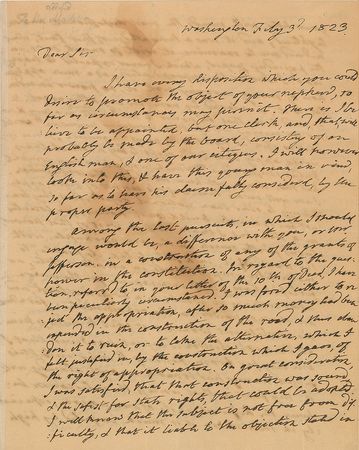 Washington Feby 3d 1823.
Dear Sir
I have every disposition which you could
desire to promote the object of your nephew, so
far as circumstances may permit. There is I be
lieve to be appointed, but one clerk, and that will
probably be made by the board, consisting of an
English man, & one of our citizens. I will however
look into this, & have this young man in view,
so far as to have his claim fully considered, by the
proper party.
Among the last pursuits, in which I should
engage would be, a difference with you, or Mr.
Jefferson, in a construction of any of the grants of
power in the constitution. In regard to the ques
tion, referrd to in your letter of the 10th of Decr, I have
been peculiarly circumstancd. I was forc'd either to re
ject the appropriation, after so much money had been
expended in the construction of the road, & thus aban
don it to ruin, or to take the alternative, which I
felt justified in, by the construction which I gave, of
the right of appropriation. On great consideration,
I was satisfied that that construction was sound,
& the safest for State rights, that could be adopted.
I well know that the subject is not free from dif
ficulty, & that it liable to the objection stated in